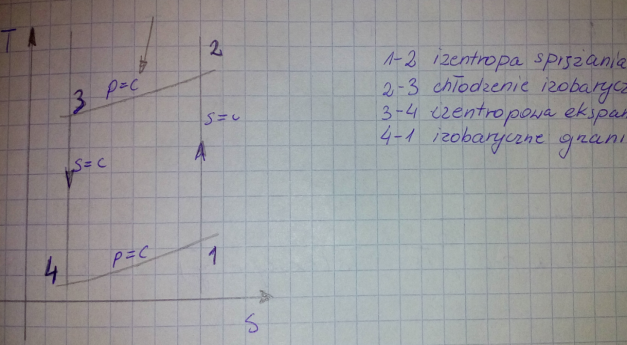 T
2
p=c
3
s=c
s=c
4
p=c
1
S
1-2 izentropa spiężania
2-3 chłodzenie izobarycz
3-4 izentropowa ekspan
4-1 izobaryczne grzani